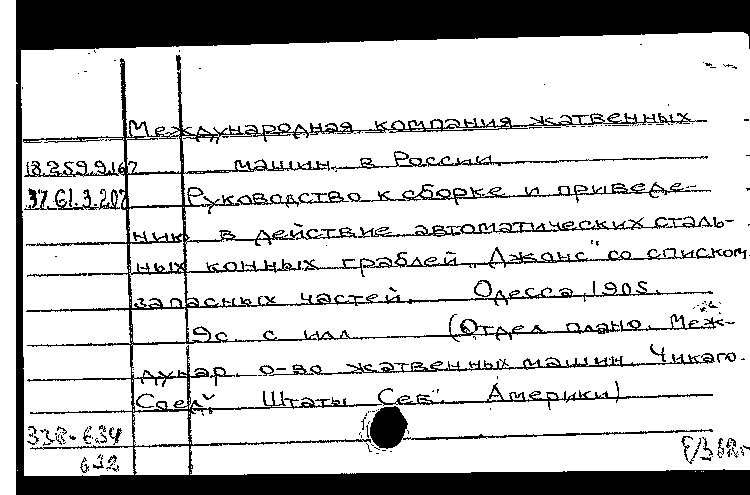 Международная компания жатвенных
18.259.9.167 машин в России.
37.61.3.207 Руководство к сборке и приведе-
нию в действие автоматических сталь-
ных конных граблей „Джонс" со списком
запасных частей. Одесса, 1905.
9с. с илл (Отдел плано. Меж-
дунар. о-во жатвенных машин. Чикаго.
Соед. Штаты Сев. Америки)
338-634
632